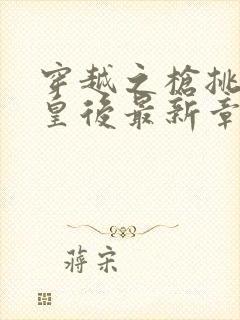 穿越之槍挑
皇後最新章
蔣宋